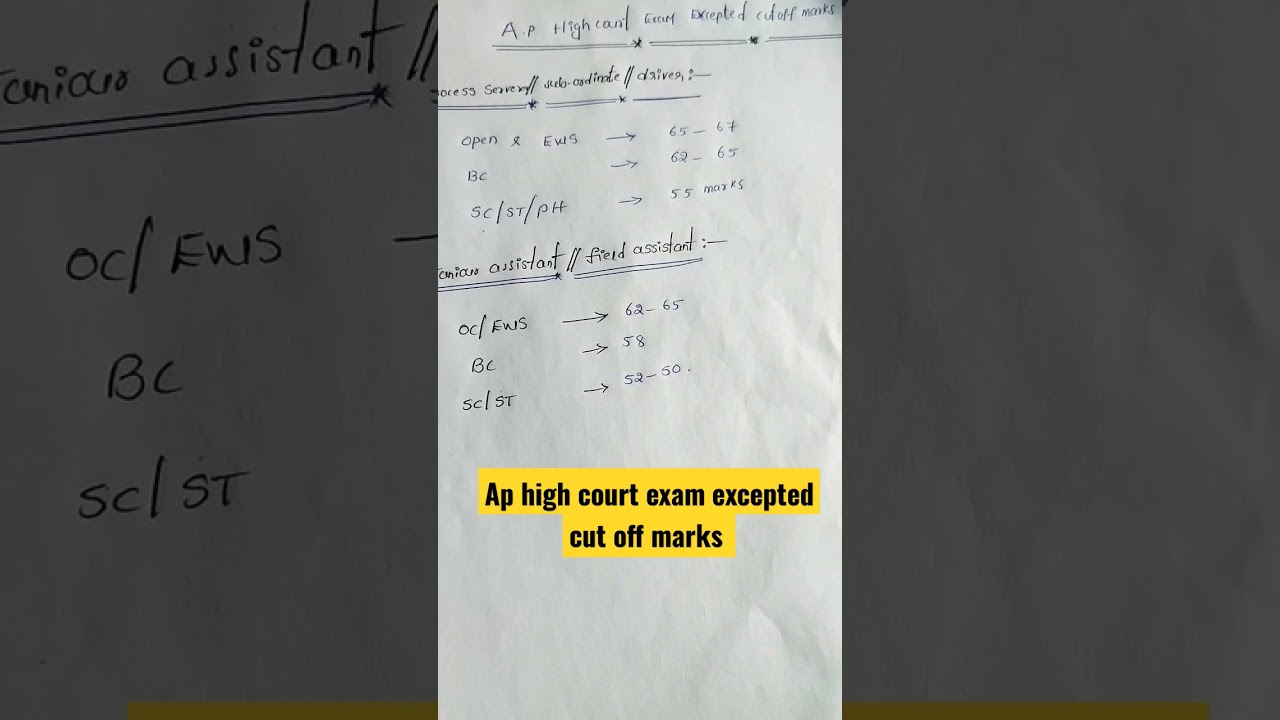 A.P High court Exam Excepted cutoff marks
ocess Server// sub-ordinate// driver:—
open & EWS → 65 – 67
BC → 62 – 65
SC/ST/PH → 55 marks
unior assistant// field assistant:—
OC/EWS → 62 – 65
BC → 58
SC/ST → 52 – 50.
Ap high court exam excepted
cut off marks
unior assistant //
OC/EWS
BC
SC/ST